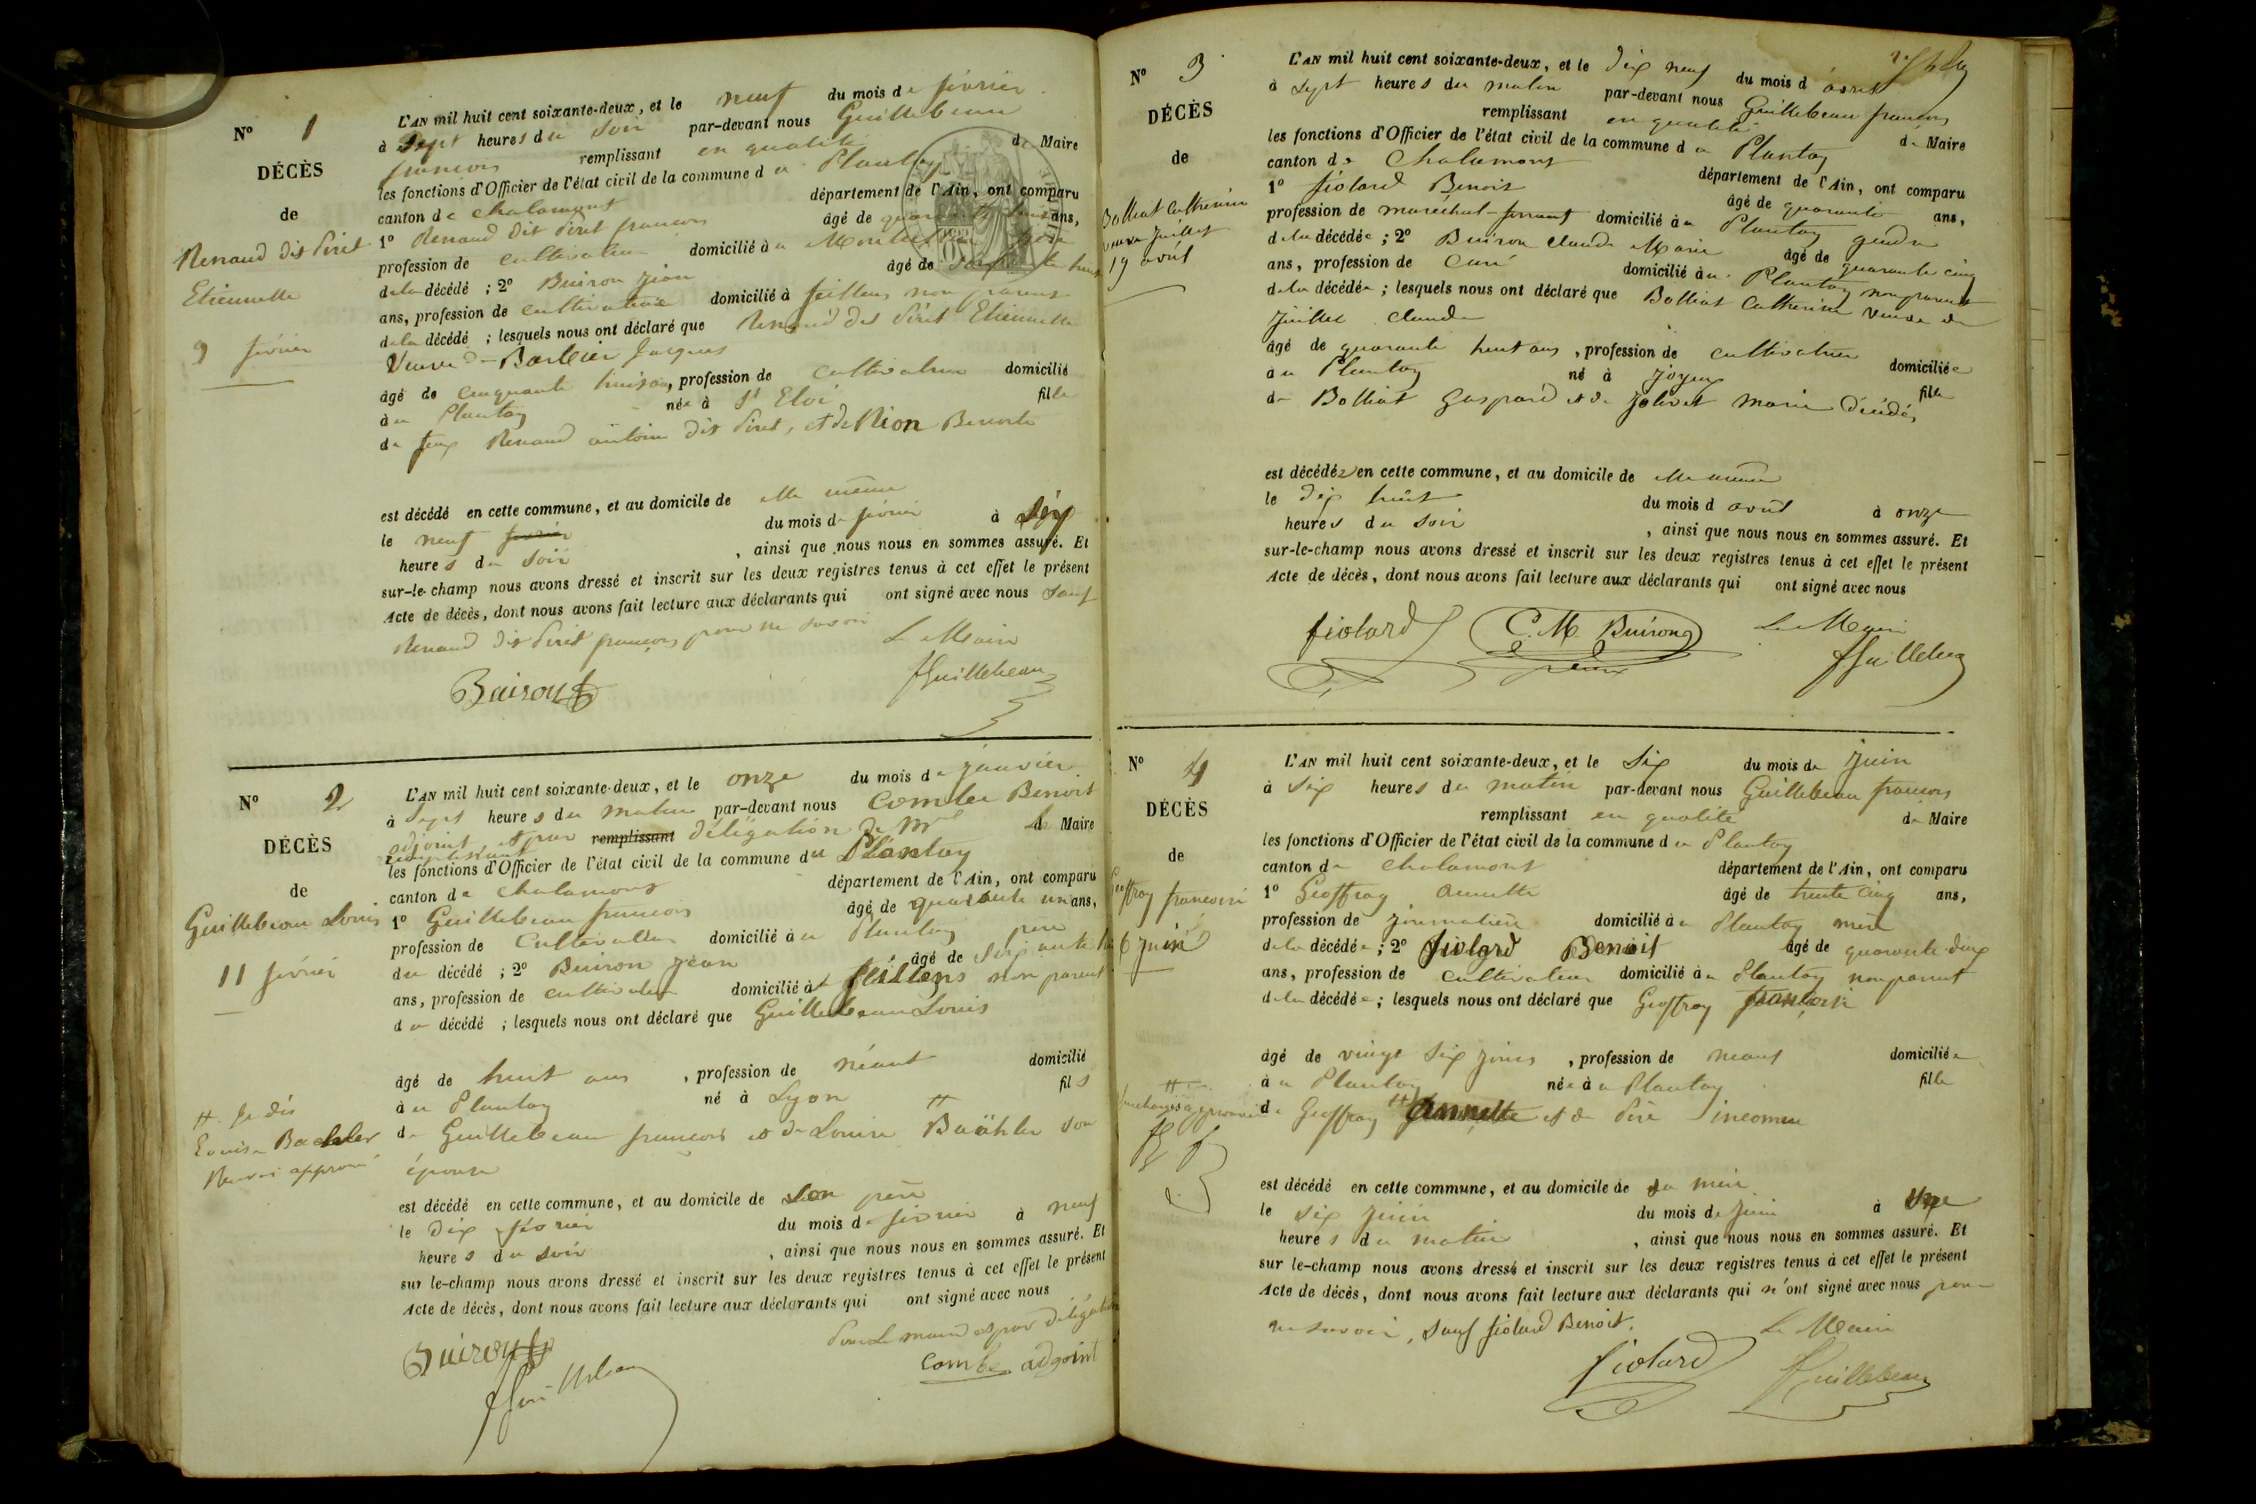 N° 1
DÉCÈS
de
Renaud dit Piret
Etiennette
9 février
L'AN mil huit cent soixante-deux, et le neuf du mois de février
à sept heures du soir par-devant nous Guillebeau
françois remplissant en qualité de Maire
les fonctions d'Officier de l'état civil de la commune du Plantay
canton de Chalamont département de l'Ain, ont comparu
1° Renaud dit Piret françois âgé de quarante ans,
profession de cultivateur domicilié à
de la décédé ; 2° Buiron Jean âgé de
ans, profession de cultivateur domicilié à feillens non parent
de la décédé ; lesquels nous ont déclaré que Renaud dit Piret Etiennette
Veuve de Barbier Jacques
âgé de cinquante huit ans, profession de cultivatrice domicilié
à u Plantay née à St Eloi fille
de feu Renaud antoine dit Piret, et de Rion Benoite
est décédé en cette commune, et au domicile de elle même
le neuf février du mois de février à six
heures du soir , ainsi que nous nous en sommes assuré. Et
sur-le-champ nous avons dressé et inscrit sur les deux registres tenus à cet effet le présent
Acte de décès, dont nous avons fait lecture aux déclarants qui ont signé avec nous sauf
Renaud dit Piret françois pour ne savoir
Le Maire
Buiron
fGuillebeau
N° 2
DÉCÈS
de
Guillebeau Louis
11 février
L'AN mil huit cent soixante-deux, et le onze du mois de janvier
à sept heures du matin par-devant nous Combe Benoit
adjoint et par remplissant délégation de Mr le Maire
remplissant
les fonctions d'Officier de l'état civil de la commune du Plantay
canton de Chalamont département de l'Ain, ont comparu
1° Guillebeau francois âgé de quarante un ans,
profession de Cultivateur domicilié à u Plantay père
du décédé ; 2° Buiron Jean âgé de soixante
ans, profession de cultivateur domicilié à feillens non parent
du décédé ; lesquels nous ont déclaré que Guillebeau Louis
âgé de huit ans , profession de néant domicilié
à u Plantay né à Lyon fils
de Guillebeau francois et de Louise # Baähler son
épouse
# Je dis
Louise Baehler
Renvoi approuvé
est décédé en cette commune, et au domicile de son père
le dix février du mois de février à neuf
heures du soir , ainsi que nous nous en sommes assuré. Et
sur le-champ nous avons dressé et inscrit sur les deux registres tenus à cet effet le présent
Acte de décès, dont nous avons fait lecture aux déclarants qui ont signé avec nous
Pour Le maire et par délégation
Buiron
Combe adjoint
fGuillebeau
N° 3
DÉCÈS
de
Bolliat Catherine
veuve Juillet
19 avril
L'AN mil huit cent soixante-deux, et le dix neuf du mois d'avril
à sept heures du matin par-devant nous Guillebeau françois
remplissant en qualité de Maire
les fonctions d'Officier de l'état civil de la commune du Plantay
canton de Chalamont département de l'Ain, ont comparu
1° fiolard Benoit âgé de quarante ans,
profession de maréchal-ferrant domicilié à u Plantay gendre
de la décédée ; 2° Buiron Claude Marie âgé de quarante cinq
ans, profession de Curé domicilié à u Plantay non parent
de la décédée ; lesquels nous ont déclaré que Bolliat Catherine veuve de
Juillet Claude
âgé de quarante huit ans , profession de cultivatrice domiciliée
à u Plantay né à Joyeux fille
de Bolliat Gaspard et de Jolivet Marie décédés
est décédée en cette commune, et au domicile de elle même
le dix huit du mois d avril à onze
heures du soir , ainsi que nous nous en sommes assuré. Et
sur-le-champ nous avons dressé et inscrit sur les deux registres tenus à cet effet le présent
Acte de décès, dont nous avons fait lecture aux déclarants qui ont signé avec nous
fiolard C. M. Buiron Le Maire
fGuillebeau
N° 4
DÉCÈS
de
Geoffray francoise
6 juin
L'AN mil huit cent soixante-deux, et le six du mois de Juin
à six heures du matin par-devant nous Guillebeau francois
remplissant en qualité de Maire
les fonctions d'Officier de l'état civil de la commune du Plantay
canton de Chalamont département de l'Ain, ont comparu
1° Geoffray annette âgé de trente cinq ans,
profession de journalière domicilié à u Plantay mère
de la décédée ; 2° fiolard Benoit âgé de quarante deux
ans, profession de cultivateur domicilié à u Plantay non parent
de la décédée ; lesquels nous ont déclaré que Geoffray françoise
âgé de vingt six jours , profession de néant domiciliée
à u Plantay née à u Plantay fille
de Geoffray # annette et de Père inconnu
est décédé en cette commune, et au domicile de sa mère
le six Juin du mois de Juin à
heures du matin , ainsi que nous nous en sommes assuré. Et
sur le-champ nous avons dressé et inscrit sur les deux registres tenus à cet effet le présent
Acte de décès, dont nous avons fait lecture aux déclarants qui n'ont signé avec nous pour
ne savoir, sauf fiolard Benoit. Le Maire
fiolard fGuillebeau